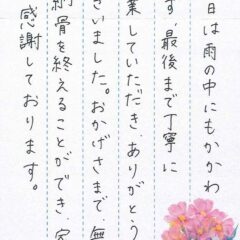 日は雨の中にもかかわ
す、最後まで丁寧に
業していただき、ありがとう
さいました。おかげさまで、無
納骨を終えることができ、家
感謝しております。